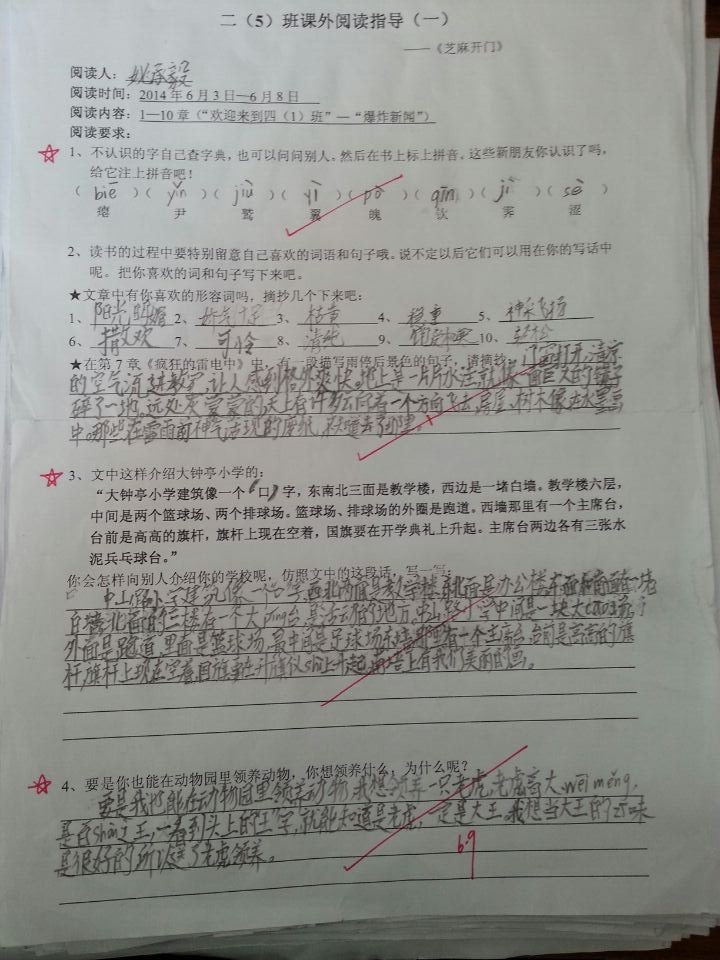 二（5）班课外阅读指导（一）
——《芝麻开门》
阅读人：姚承毅
阅读时间：2014年6月3日—6月8日
阅读内容：1—10章（“欢迎来到四（1）班”—“爆炸新闻”）
阅读要求：
1、不认识的字自己查字典，也可以问问别人。然后在书上标上拼音。这些新朋友你认识了吗，
给它注上拼音吧！
（biē）（yǐn）（jiù）（yì）（pò）（qīn）（jì）（sè）
尹 鹫 翼 魄 钦 霁 涩
2、读书的过程中要特别留意自己喜欢的词语和句子哦。说不定以后它们可以用在你的写话中
呢。把你喜欢的词和句子写下来吧。
★文章中有你喜欢的形容词吗，摘抄几个下来吧：
1、阳光明媚 2、娇气十足 3、枯黄 4、稳重 5、神采飞扬
6、撒欢 7、可怜 8、清纯 9、 10、轻松
★在第7章《疯狂的雷电中》中，有一段描写雨停后景色的句子，请摘抄：门窗打开，清凉
的空气流进教室，让人感到格外爽快。地上是一片片水洼，就像一面巨大的镜子
碎了一地。远处灰蒙蒙的天上有许多云向着一个方向飞去，房屋、树木像在水墨画
中。哪些在雷雨前神气活现的废纸，
3、文中这样介绍大钟亭小学的：
“大钟亭小学建筑像一个“口”字，东南北三面是教学楼，西边是一堵白墙。教学楼六层，
中间是两个篮球场、两个排球场。篮球场、排球场的外圈是跑道。西墙那里有一个主席台，
台前是高高的旗杆，旗杆上现在空着，国旗要在开学典礼上升起。主席台两边各有三张水
泥兵乓球台。”
你会怎样向别人介绍你的学校呢，仿照文中的这段话，写一写：
中山路小学建筑像一个吕字，西北两面是教学楼，东北面是办公楼，东面和南面在一堵
白墙。北面的三楼有一个大píng台，是活动的地方。中山路小学中间是一块大cāo场，
外面是跑道，里面是篮球场，最中间是足球场。东墙那里有一个主席台，台前是高高的旗
杆，旗杆上现在空着，国旗要在升旗仪shì上升起。南墙上有我们美丽的画。
4、要是你也能在动物园里领养动物，你想领养什么，为什么呢？
要是我也能在动物园里领养动物，我想领养一只老虎，老虎高大、wēi měng，
是百shòu王，一看到头上的“王”字，就能知道是老虎，一定是大王。我想当大王的zī味
是很好的，所以选了老虎领养。
6.9